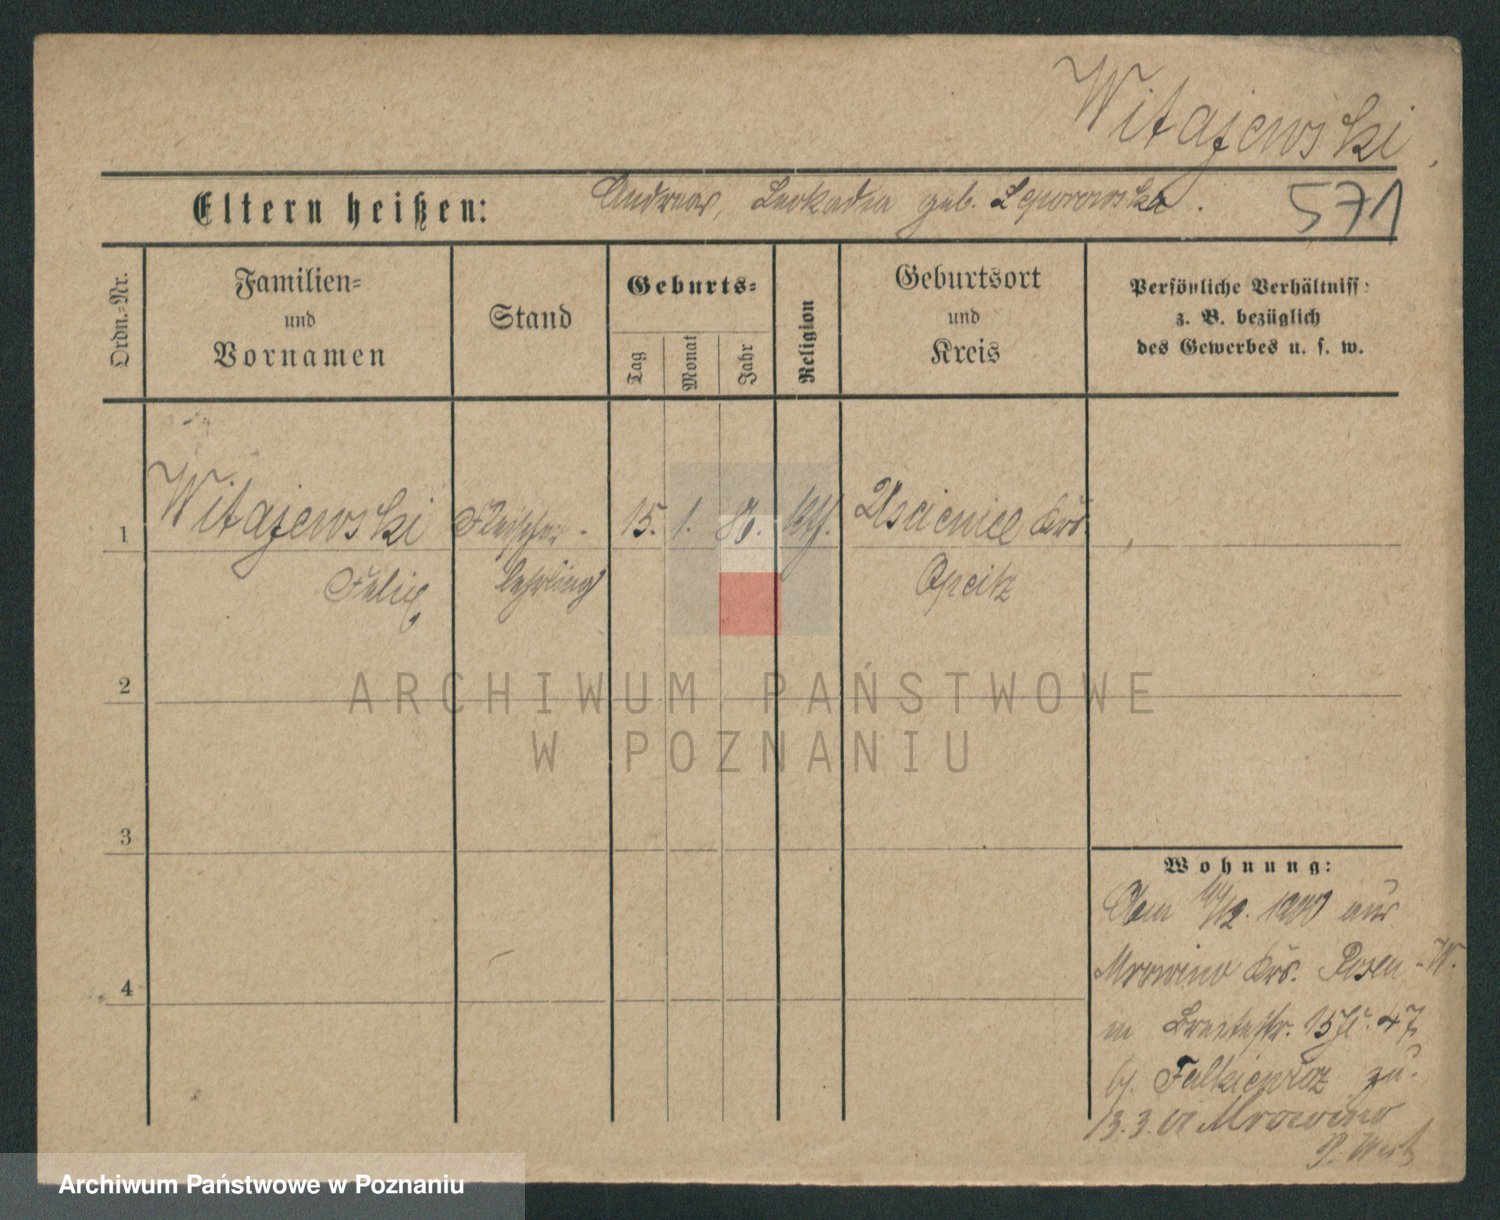 Witajewski
Eltern heißen: Andreas, Leokadia geb. Leporowska.
571
Ordn.-Nr.
Familien-
und
Vornamen
Stand
Geburts-
Tag
Monat
Jahr
Religion
Geburtsort
und
Kreis
Persönliche Verhältniss:
z. B. bezüglich
des Gewerbes u. s. w.
1 Witajewski Fleischer- 15. 1. 86. kth. Uscienice Krs.
Felix Lehrling Opeitz
2
3
4
Wohnung:
Am 12. aus
Mrowino Krs. Posen-W.
in Breitestr. 15
b. Falkiewicz zu.
13.3.01 Mrowino
P. West
ARCHIWUM PAŃSTWOWE
W POZNANIU
Archiwum Państwowe w Poznaniu